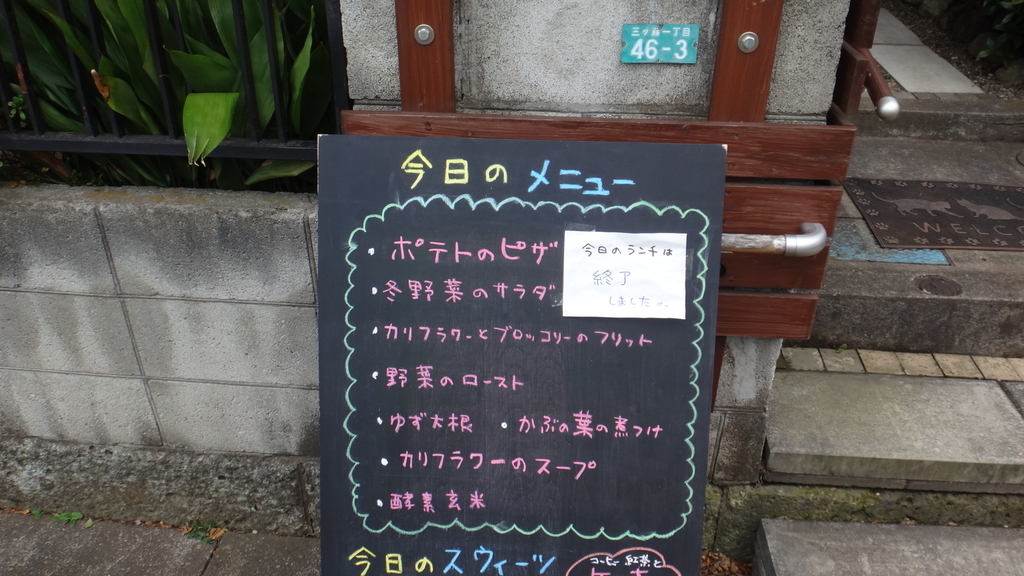 三ツ藤一丁目
46-3
今日の メニュー
・ポテトのピザ
・冬野菜のサラダ
・カリフラワーとブロッコリーのフリット
・野菜のロースト
・ゆず大根 ・かぶの葉の煮つけ
・カリフラワーのスープ
・酵素玄米
今日のランチは
終了
しました。
今日のスウィーツ
コーヒー 紅茶と
WELCO